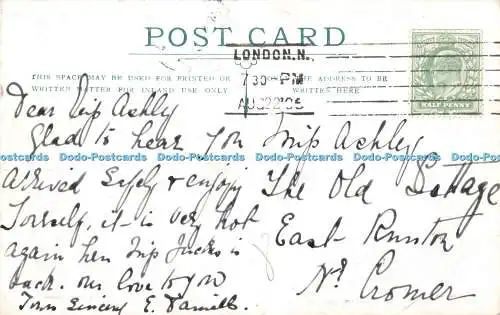 POST CARD
LONDON.N.
7 30 PM
AUG 22 06
THIS SPACE MAY BE USED FOR PRINTED OR
WRITTEN MATTER FOR INLAND USE ONLY
THE ADDRESS TO BE
WRITTEN HERE
HALF PENNY
Dear Miss Ashley
Glad to hear you
arrived safely & enjoy
Yourself, it is very hot
again here Miss
is
back. our love to you
Yours Sincerely E.
Miss Ashley
The Old Cottage
East Runton
Nr Cromer
Dodo-Postcards Dodo-Postcards Dodo-Postcards Dodo-Postcards Dodo-Postcards Dodo-Postcards